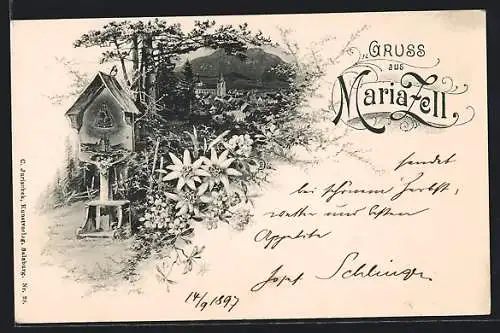 GRUSS
aus
MariaZell
sendet
bei schönem Herbst-
wetter und besten
Appetite
Josef Schlinger
14/9 1897
C. Jurischek, Kunstverlag, Salzburg. Nr. 25.